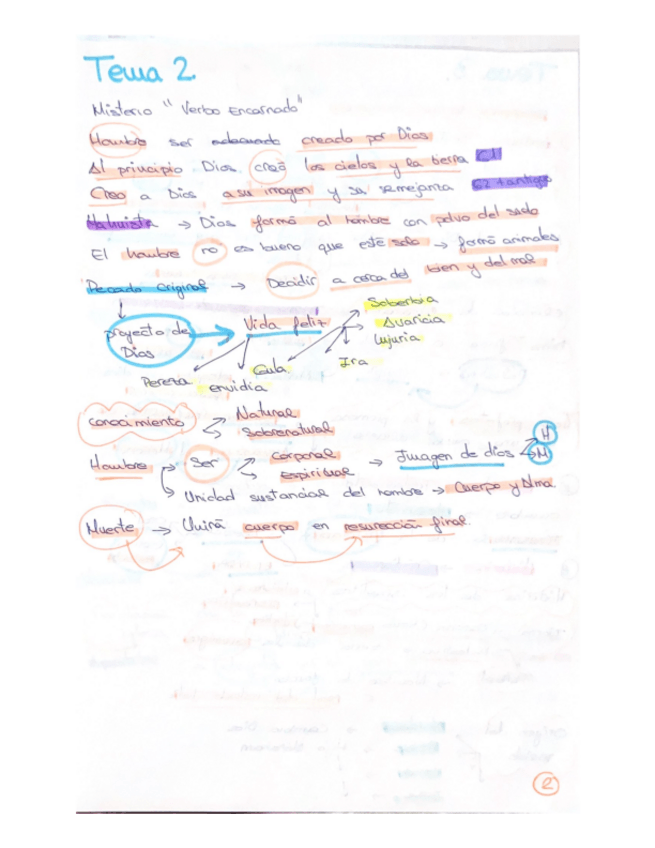 Tema 2.
Misterio "Verbo Encarnado"
Hombre ser adecuado creado por Dios
Al principio Dios creó los cielos y la tierra C1
Creo a Dios a su imagen y su semejanza G2 + antiguo
→ Dios formó al hombre con polvo del suelo
El hombre no es bueno que esté solo → formó animales
Pecado original → Decidir a cerca del bien y del mal
Soberbia
proyecto de Dios → Vida feliz
Avaricia
Lujuria
Ira
Gula
Pereza envidia
conocimiento Natural
Sobrenatural
Hombre Ser corporal
Espiritual → Imagen de dios H
M
Unidad sustancial del hombre → Cuerpo y Alma
Muerte → Unirá cuerpo en resurección final
2